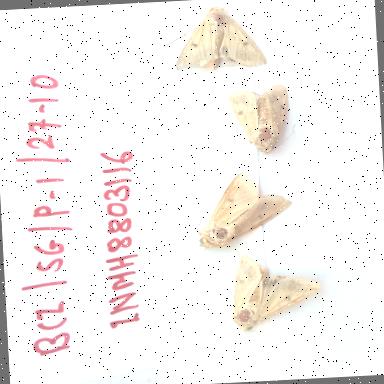 BCZ/SG/P-1/27-10
LNMH8803116